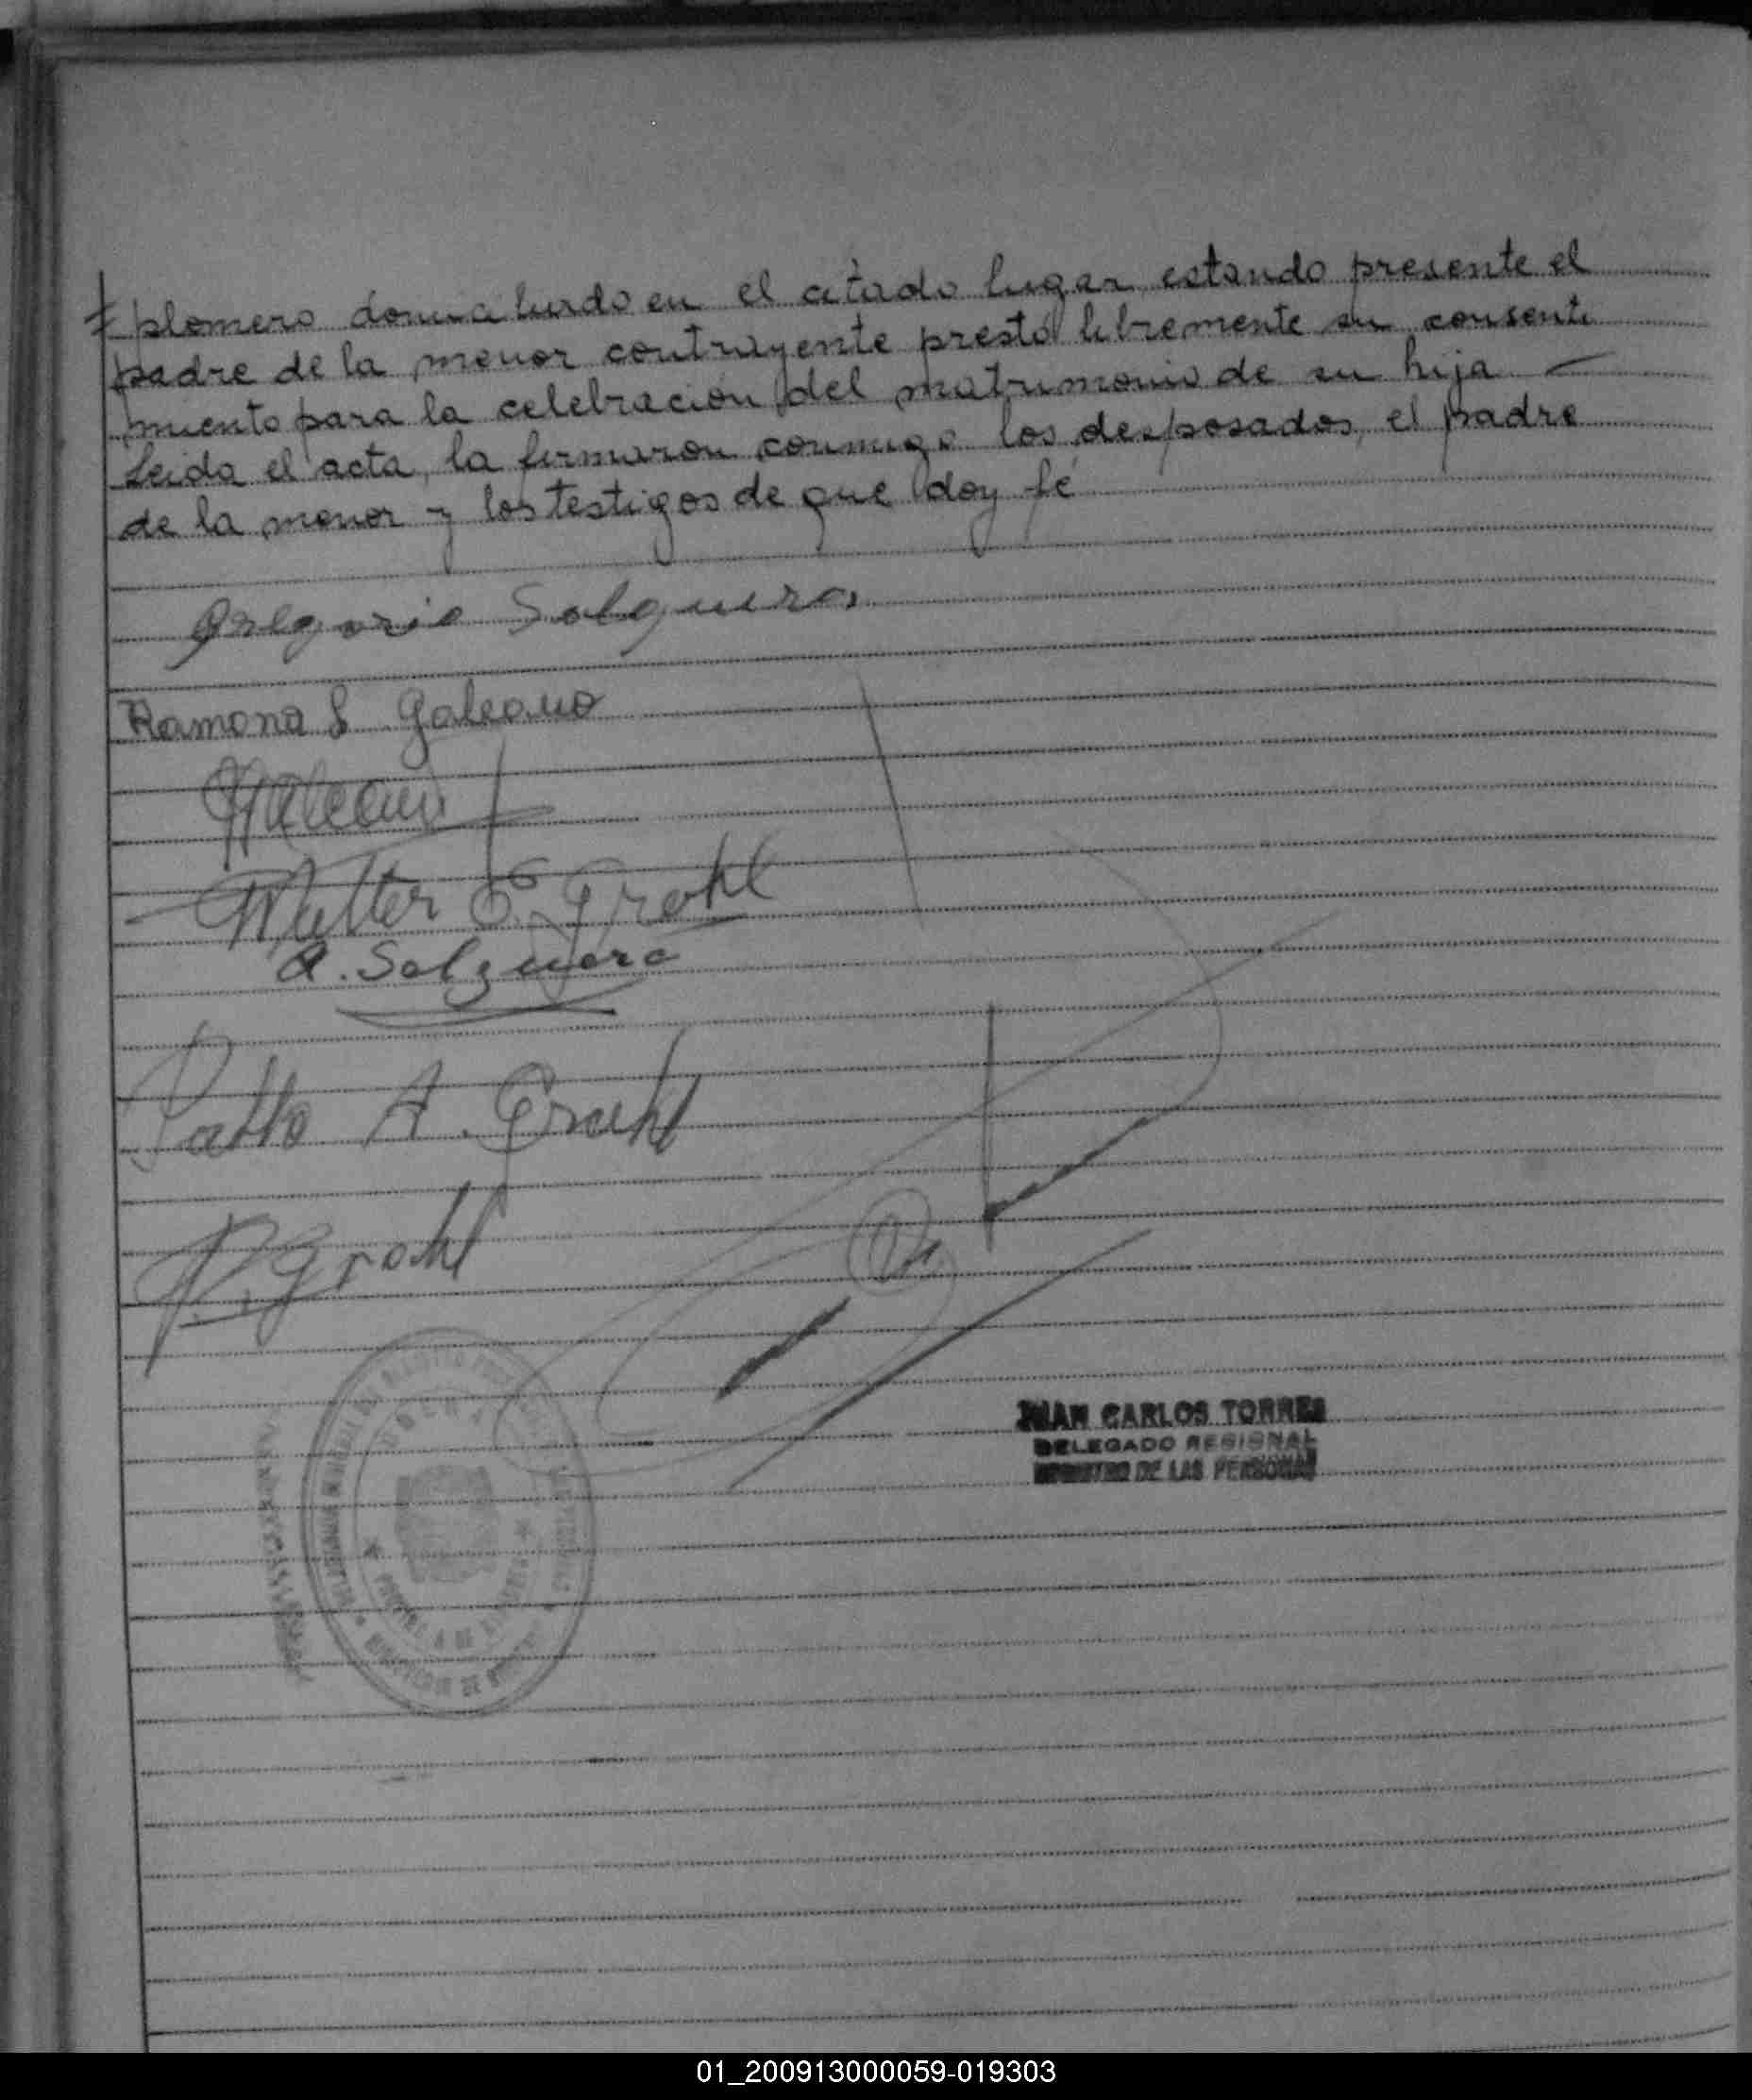 plomero domiciliado en el citado lugar, estando presente el
padre de la menor contrayente prestó libremente su consenti
miento para la celebración del matrimonio de su hija —
Leida el acta, la firmaron conmigo los desposados, el padre
de la menor y los testigos de que doy fé
Gregorio Solguera
Ramona S Galeano
Galeano
Walter E. Grohl
A. Solguera
Pablo A. Grahl
Grohl
JUAN CARLOS TORRES
DELEGADO REGIONAL
REGISTRO DE LAS PERSONAS
01_200913000059-019303